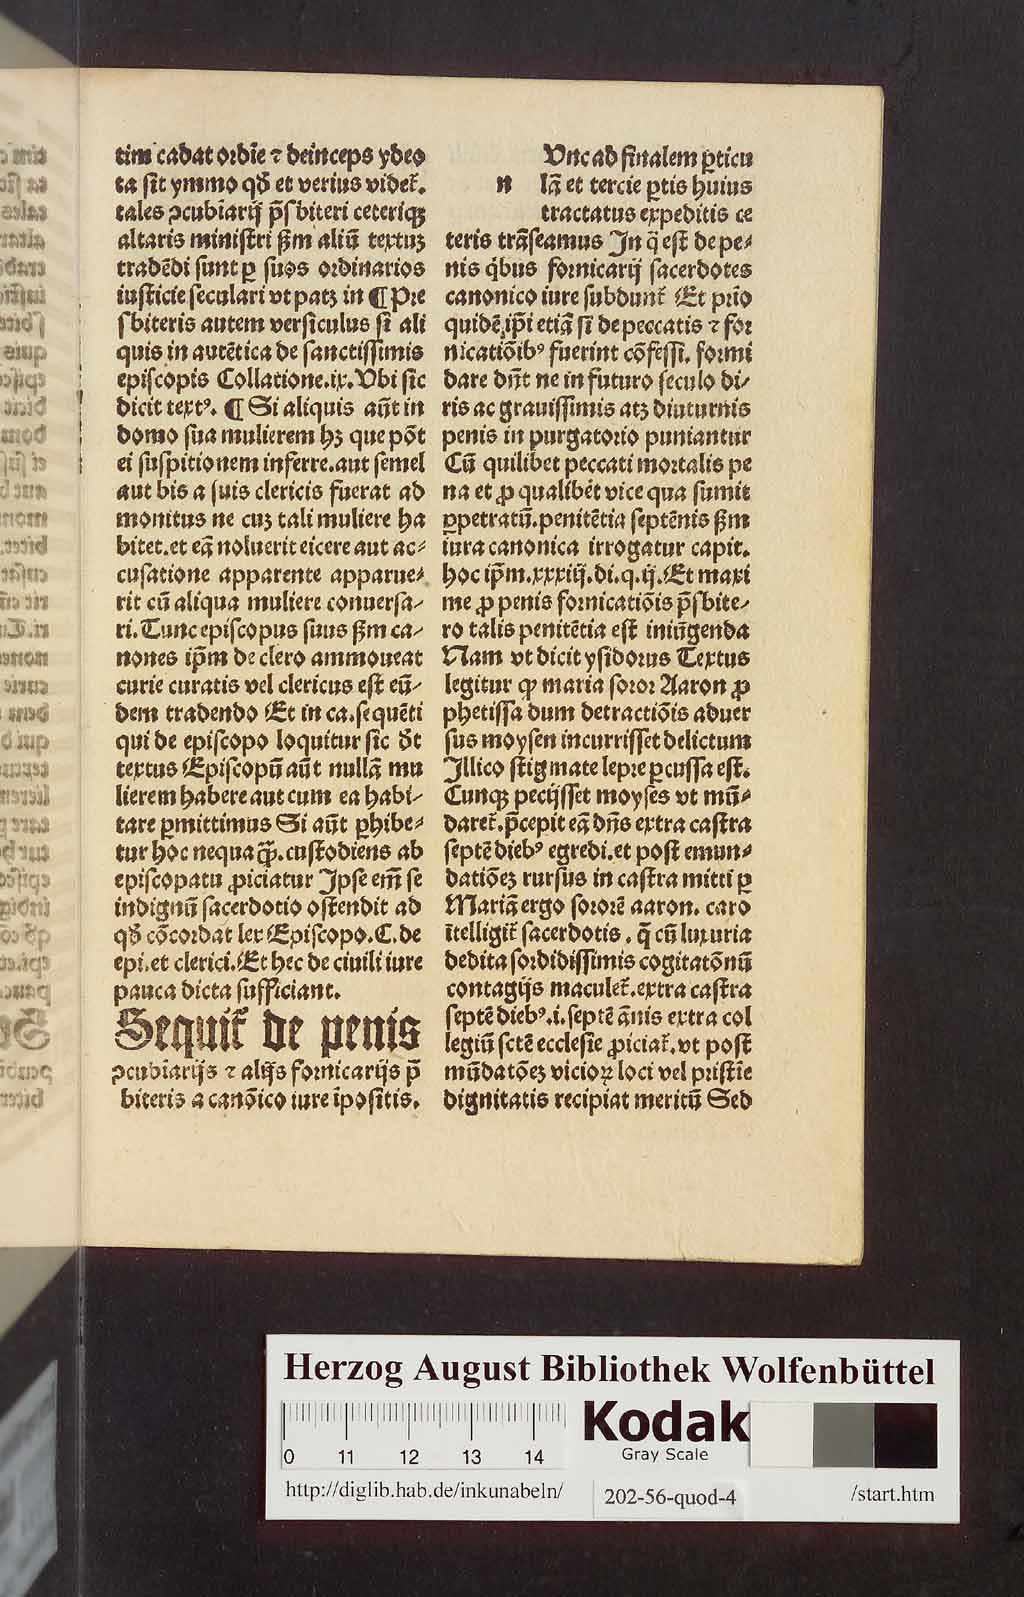 tim cadat ordīe ⁊ deinceps ydeo
ta sit ymmo qđ et verius videt᷑.
tales ꝯcubīarij p̄sbiteri ceteriqꝫ
altaris ministri ẜm aliū textuꝫ
tradēdi sunt ꝑ suos ordinarios
iusticie seculari vt patꝫ in ¶ Pre
sbiteris autem versiculus si ali
quis in autētica de sanctissimis
episcopis Collatione.ix. Vbi sic
dicit textꝰ. ¶ Si aliquis aūt in
domo sua mulierem hꝫ que pōt
ei suspitionem inferre.aut semel
aut bis a suis clericis fuerat ad
monitus ne cuꝫ tali muliere ha
bitet.et eā noluerit eicere aut ac⸗
cusatione apparente apparue⸗
rit cū aliqua muliere conuersa⸗
ri. Tunc episcopus suus ẜm ca⸗
nones ip̄m de clero ammoueat
curie curatis vel clericus est eū⸗
dem tradendo Et in ca. sequēti
qui de episcopo loquitur sic d̄t
textus Episcopū aūt nullā mu
lierem habere aut cum ea habi⸗
tare ꝑmittimus Si aūt ꝓhibe⸗
tur hoc nequaꝙ̄. custodiens ab
episcopatu ꝓiciatur Ipse em̄ se
indignū sacerdotio ostendit ad
qđ cōcordat lex Episcopo. C. de
epi.et clerici. Et hec de ciuili iure
pauca dicta sufficiant.
Sequit᷑ de penis
ꝯcubīarijs ⁊ alijs fornicarijs p̄
biteris a canōico iure īpositis.
Vnc ad finalem ꝑticu
n lā et tercie ꝑtis huius
tractatus expeditis ce
teris trāseamus In q̄ est de pe⸗
nis qͥbus fornicarij sacerdotes
canonico iure subdunt᷑ Et prīo
quidē ip̄i etiā si de peccatis ⁊ for
nicatiōibꝰ fuerint cōfessi. formi
dare dn̄t ne in futuro seculo di⸗
ris ac grauissimis atꝫ diuturnis
penis in purgatorio puniantur
Cū quilibet peccati mortalis pe
na et ꝓ qualibēt vice qua sumit
ꝑpetratū.penitētia septēnis ẜm
iura canonica irrogatur capit.
hoc ip̄m.xxxiij.di.q.ij. Et maxi
me ꝓ penis fornicatiōis p̄sbite⸗
ro talis penitētia est iniūgenda
Nam vt dicit ysidorus Textus
legitur ꝙ maria soror Aaron ꝓ
phetissa dum detractiōis aduer
sus moysen incurrisset delictum
Illico stigmate lepre ꝑcussa est.
Cunqꝫ pecijsset moyses vt mū⸗
daret᷑.p̄cepit eā dn̄s extra castra
septē diebꝰ egredi.et post emun⸗
datiōeꝫ rursus in castra mitti ꝑ
Mariā ergo sororē aaron. caro
ītelligit᷑ sacerdotis. q̄ cū luxuria
dedita sordidissimis cogitatōnū
contagijs maculet᷑.extra castra
septē diebꝰ.i. septē ānis extra col
legiū sctē ecclesie ꝓiciat᷑.vt post
mūdatōeꝫ vicioꝝ loci vel pristīe
dignitatis recipiat meritū Sed
Herzog August Bibliothek Wolfenbüttel
0 11 12 13 14
Kodak
Gray Scale
http://diglib.hab.de/inkunabeln/ 202-56-quod-4 /start.htm